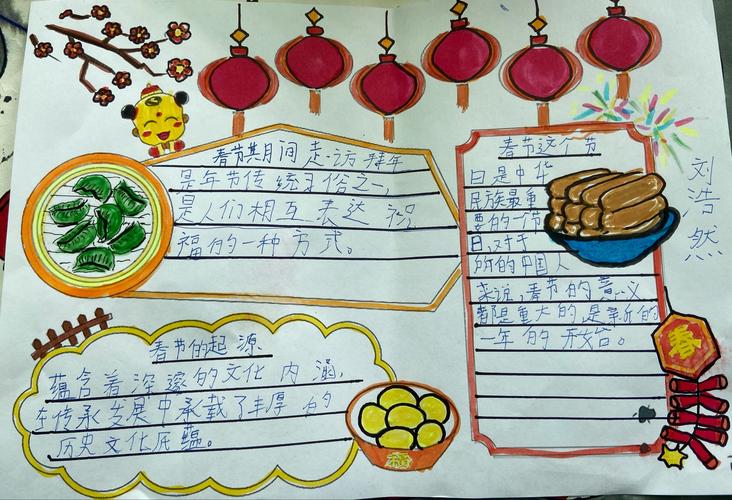 春节其月间走访拜年
是年节传统习俗之一，
是人们相互表达祝
福的一种方式。
春节这个节
日是中华
民族最重
要的一节
日，对于
所的中国人
来说，春节的意义
都是重大的是新的
一年的开始。
刘浩然
春
春节的起源
蕴含着深邃的文化内涵，
在传承发展中承载了丰厚的
历史文化底蕴。